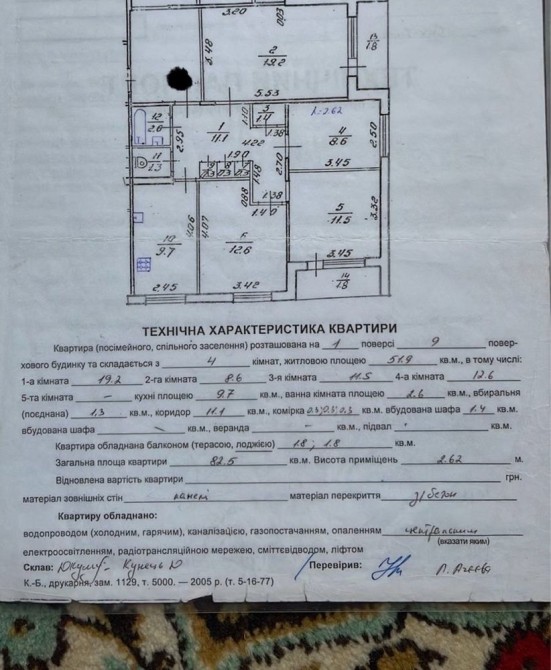 3.20
0.93
3.48
2
19.2
5.53
13
1.8
12
2.6
2.95
1
11.1
1.10
3
1.4
1.38
h=2.62
4
8.6
2.50
4.22
3.45
11
1.3
1.90
1.48
2.70
0.3 0.3 0.3
0.88
1.38
1.40
5
11.5
3.32
3.45
10
9.7
4.06
4.07
6
12.6
2.45
3.42
14
1.8
ТЕХНІЧНА ХАРАКТЕРИСТИКА КВАРТИРИ
Квартира (посімейного, спільного заселення) розташована на 1 поверсі 9 повер-
хового будинку та складається з 4 кімнат, житловою площею 51.9 кв.м., в тому числі:
1-а кімната 19.2 2-га кімната 8.6 3-я кімната 11.5 4-а кімната 12.6
5-та кімната – кухні площею 9.7 кв.м., ванна кімната площею 2.6 кв.м., вбиральня
(поєднана) 1.3 кв.м., коридор 11.1 кв.м., комірка 0.3; 0.3; 0.3 кв.м. вбудована шафа 1.4 кв.м.
вбудована шафа кв.м., веранда – кв.м., підвал кв.м.
Квартира обладнана балконом (терасою, лоджією) 1.8; 1.8 кв.м.
Загальна площа квартири 82.5 кв.м. Висота приміщень 2.62 м.
Відновлена вартість квартири грн.
матеріал зовнішніх стін панелі матеріал перекриття з/бетон
Квартиру обладнано:
водопроводом (холодним, гарячим), каналізацією, газопостачанням, опаленням центральним
(вказати яким)
електроосвітленням, радіотрансляційною мережею, сміттєвідводом, ліфтом
Склав: Перевірив:
К.-Б., друкарня, зам. 1129, т. 5000. — 2005 р. (т. 5-16-77)